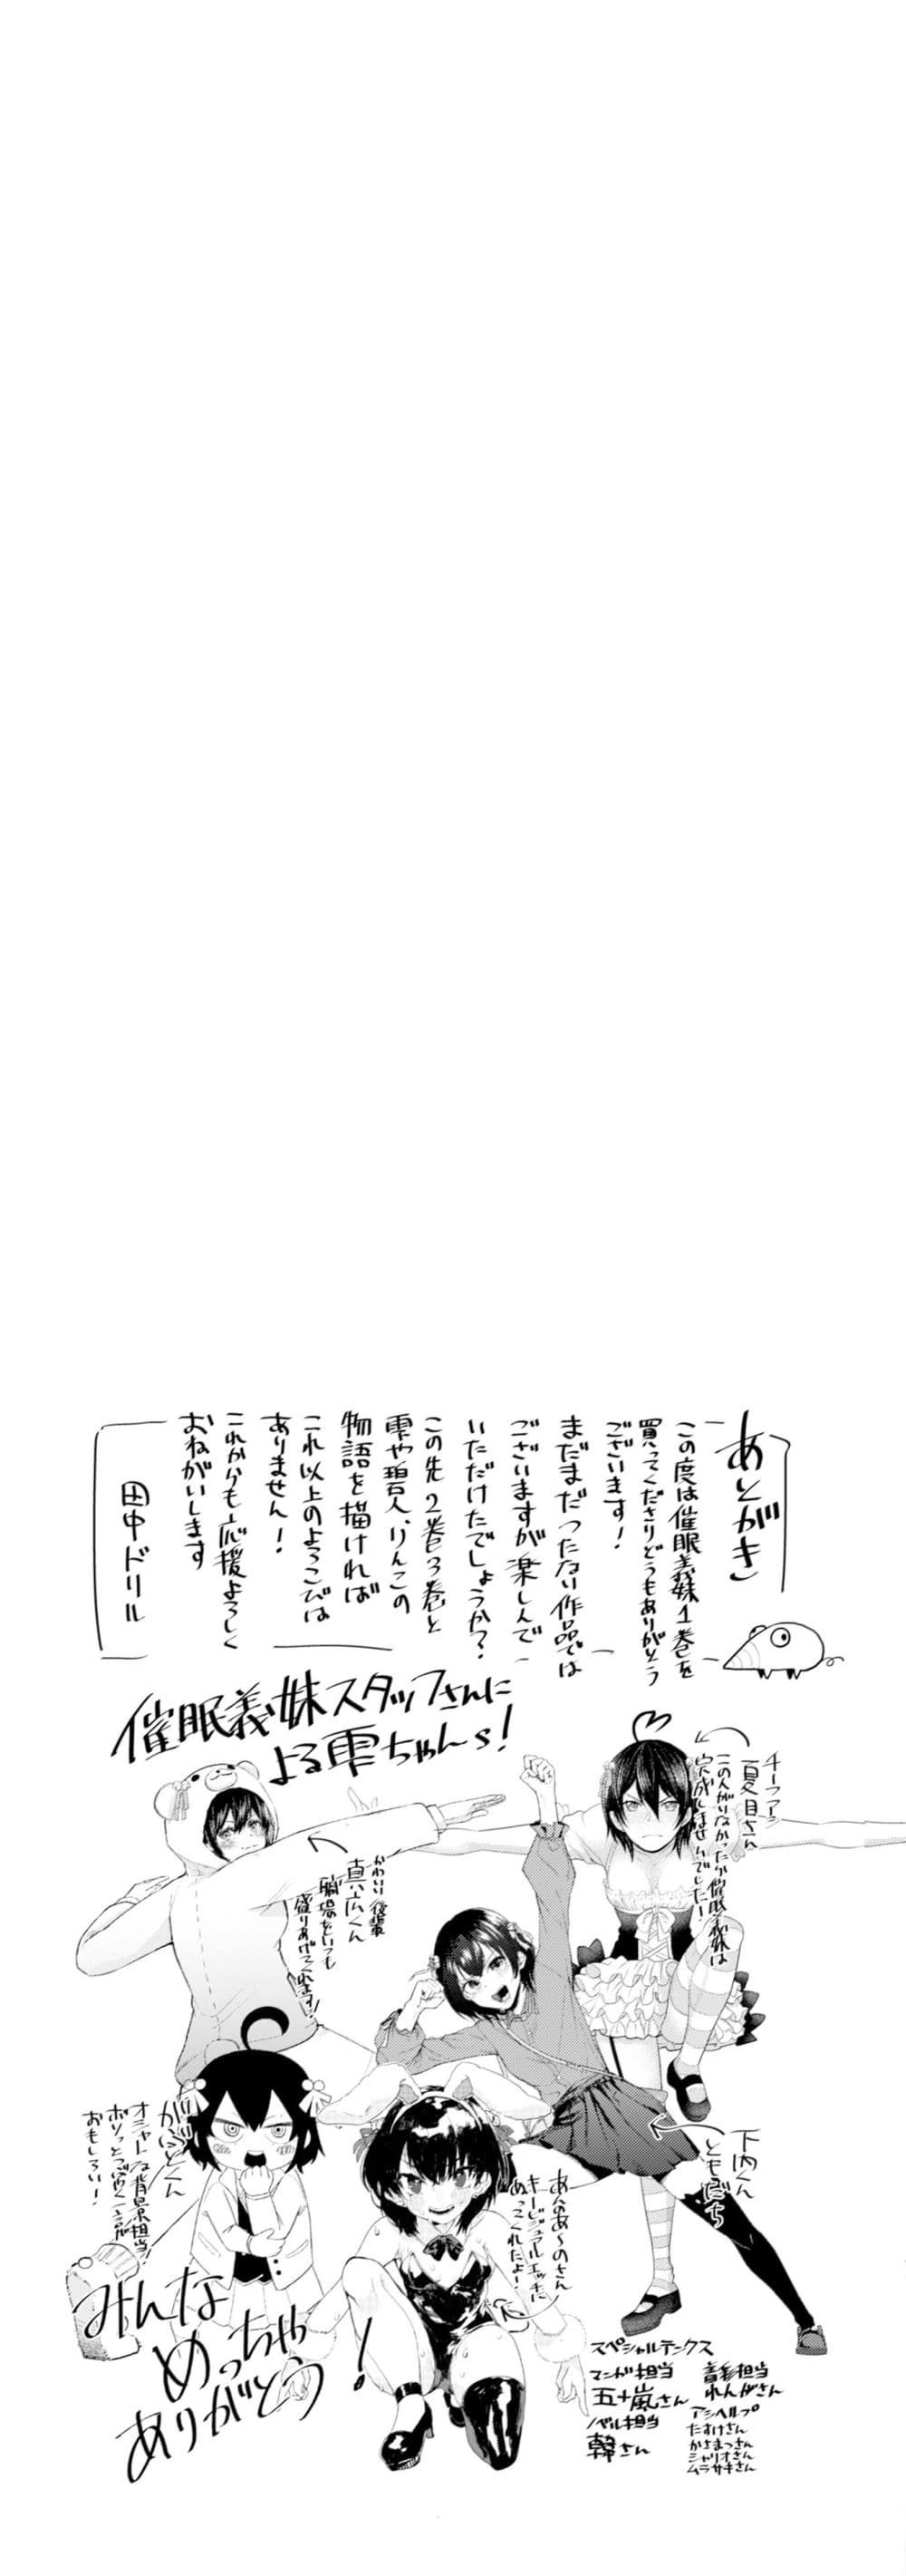 あとがき
この度は催眠義妹1巻を
買ってくださりどうもありがとう
ございます!
まだまだつたない作品では
ございますが楽しんで
いただけたでしょうか?
この先2巻3巻と
雫や碧人、りんこの
物語を描ければ
これ以上のよろこびは
ありません!
これからも応援よろしく
おねがいします
田中ドリル
催眠義妹スタッフさんに
よる雫ちゃんs!
チーフアシ
夏目さん
この人がいなかったら催眠義妹は
完成しませんでした!
かわいい後輩
真広くん
職場をいつも
盛りあげてくれます!
下内くん
ともだち
がぶとくん
オシャレな背景担当!
ボソッとつぶやく一言が
おもしろい!
あんあ〜のさん
キービジュアルエッチに
ぬってくれたよー!
みんな
めっちゃ
ありがとう!
スペシャルテンクス
マンガ担当
五十嵐さん
ノベル担当
韓さん
着彩担当
れんがさん
アシヘルプ
たすけさん
かさまつさん
シャリオさん
ムラサキさん